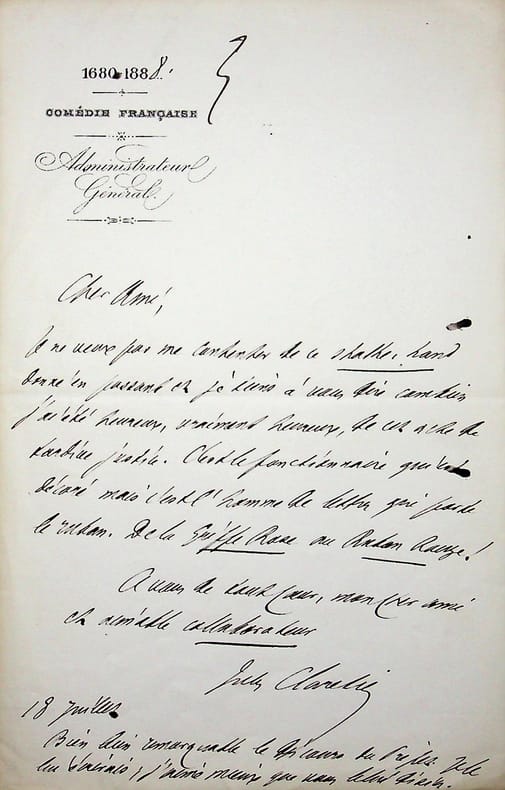 1680-1888.
COMÉDIE FRANÇAISE
Administrateur
Général.
Cher Ami,
Je ne veux pas me contenter de ce shake-hand
donné en passant et je tiens à vous dire combien
j'ai été heureux, vraiment heureux, de cet acte de
tardive justice. C'est le fonctionnaire qui est
décoré mais c'est l'homme de lettres qui porte
le ruban. De la Griffe Rose au Ruban Rouge!
A vous de tout cœur, mon cher ami
et aimable collaborateur
Jules Claretie
18 juillet
Bien bien remarquable le discours du
j'aime mieux que vous